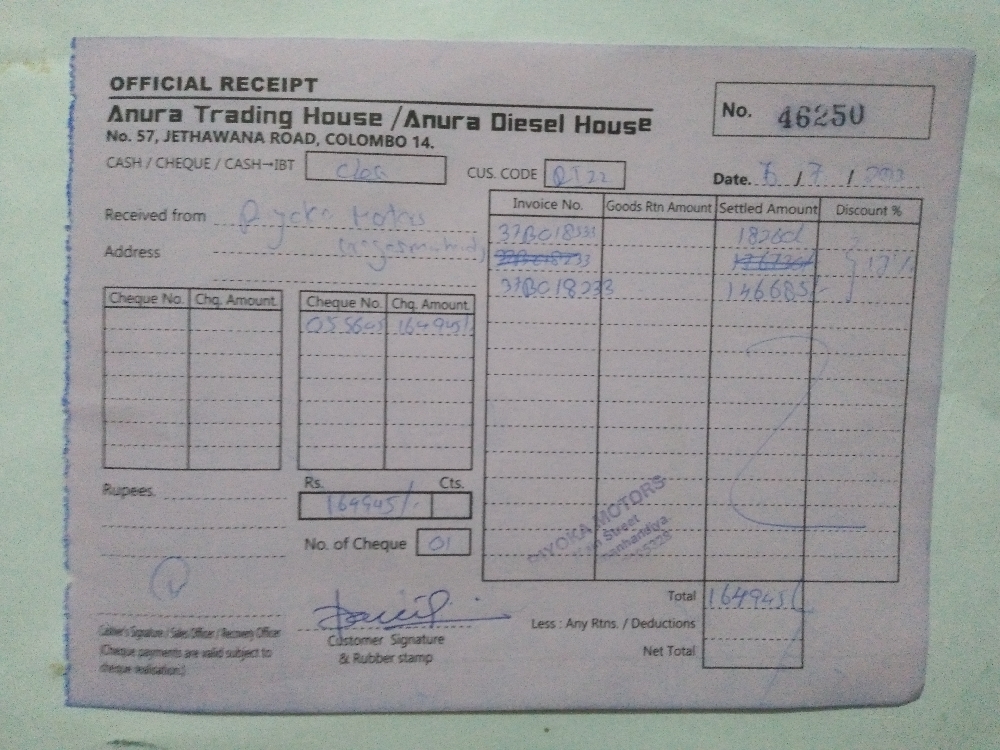 OFFICIAL RECEIPT
Anura Trading House / Anura Diesel House
No. 57, JETHAWANA ROAD, COLOMBO 14.
No. 46250
CASH / CHEQUE / CASH→IBT
CUS. CODE
Date. / 7 /
Received from
Address
Invoice No. Goods Rtn Amount Settled Amount Discount %
37BC18333
37BC18233 146685/-
Cheque No. Chq. Amount Cheque No. Chq. Amount
055645 164945/-
Rupees.
Rs. Cts.
164945/-
No. of Cheque 01
MOTORS
Street
Total 164945/-
Less : Any Rtns. / Deductions
Net Total
Customer Signature
& Rubber stamp
Cashier's Signature / Sales Officer / Recovery Officer
(Cheque payments are valid subject to
cheque realisation.)